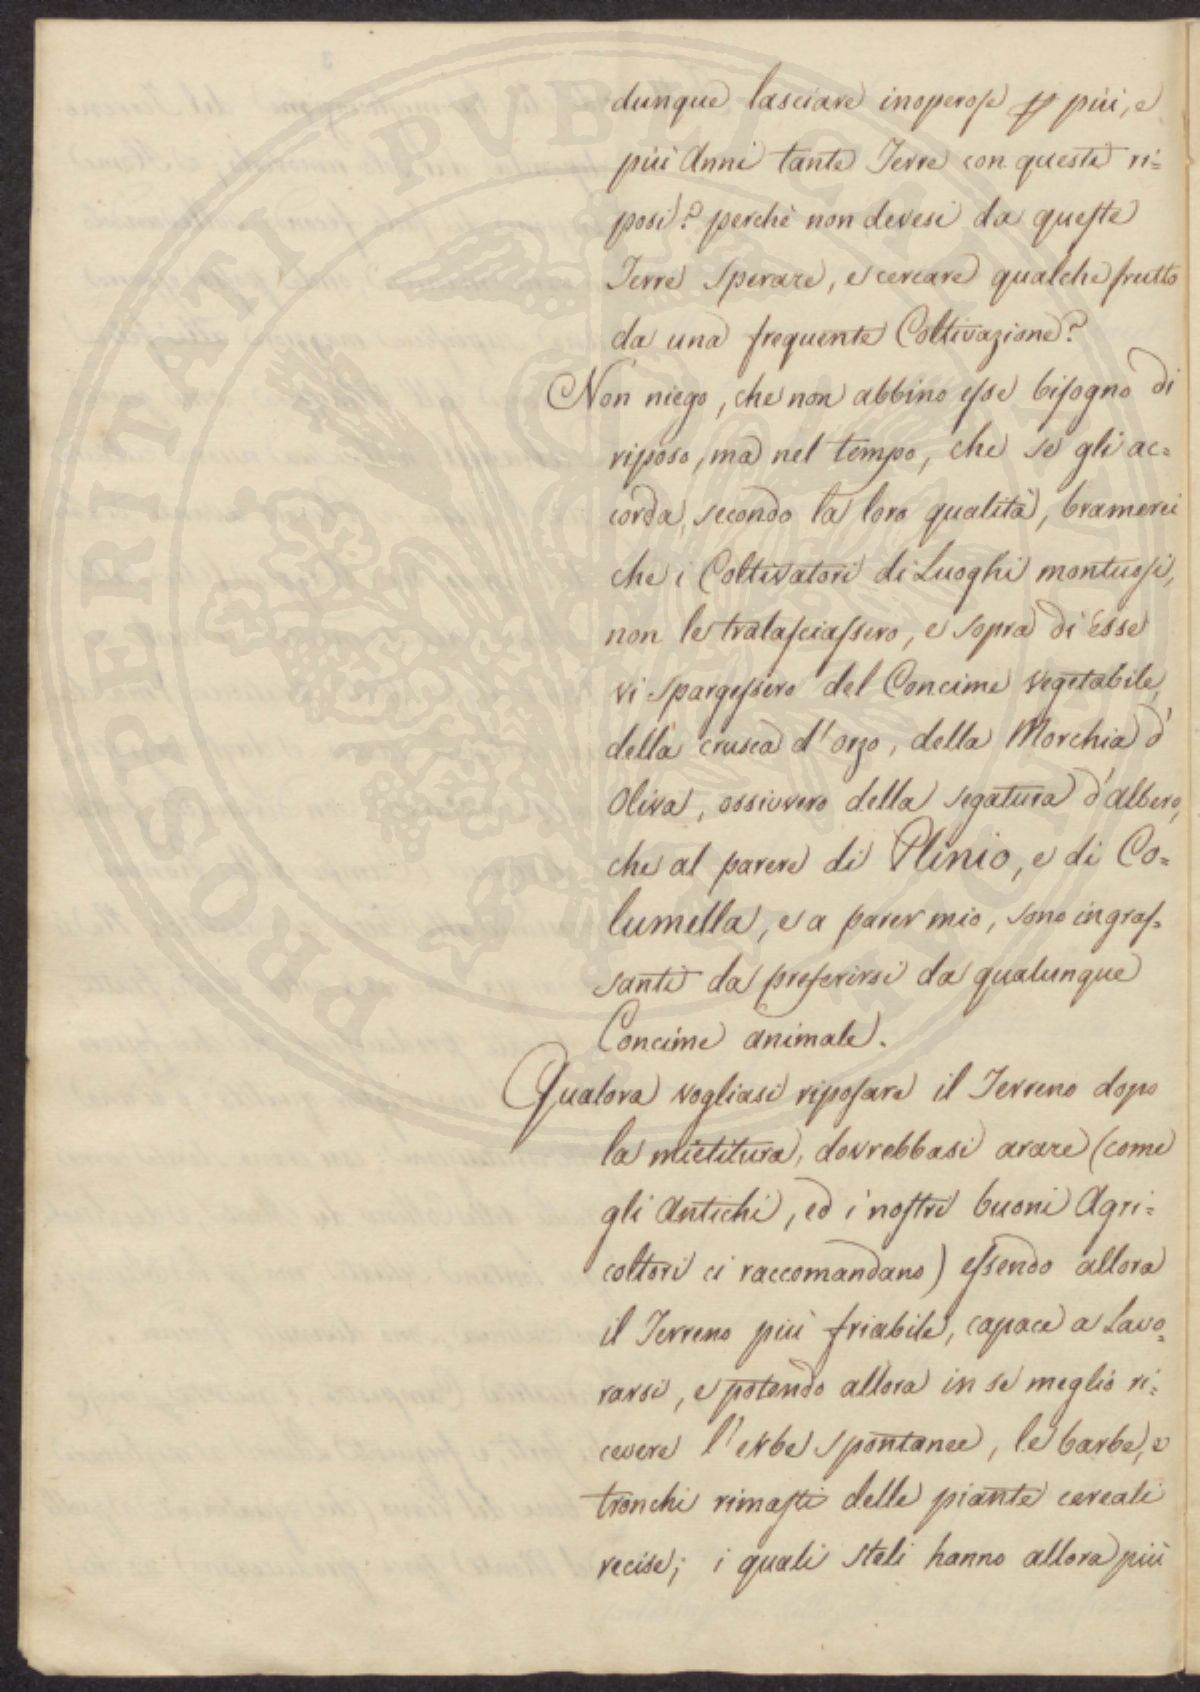 dunque lasciare inoperose p più, e
più Anni tante Terre con queste ri=
posi? perchè non devesi da queste
Terre sperare, e cercare qualche frutto
da una frequente Coltivazione?
Non niego, che non abbino esse bisogno di
riposo, ma nel tempo, che se gli ac=
corda, secondo la loro qualità, bramerei
che i Coltivatori di Luoghi montuosi,
non le tralasciassero, e sopra di esse
vi spargessero del Concime vegetabile,
della crusca d'orzo, della Morchia d'
Oliva, ossivvero della segatura d'albero,
che al parere di Plinio, e di Co=
lumella, e a parer mio, sono ingras=
santi da preferirsi da qualunque
Concime animale.
Qualora vogliasi riposare il Terreno dopo
la mietitura, dovrebbasi arare (come
gli Antichi, ed i nostri buoni Agri=
coltori ci raccomandano) essendo allora
il Terreno più friabile, capace a Lavo=
rarsi, e potendo allora in se meglio ri=
cevere l'erbe spontanee, le barbe, e
tronchi rimasti delle piante cereali
recise; i quali steli hanno allora più
PROSPERITATI PUBLICAE